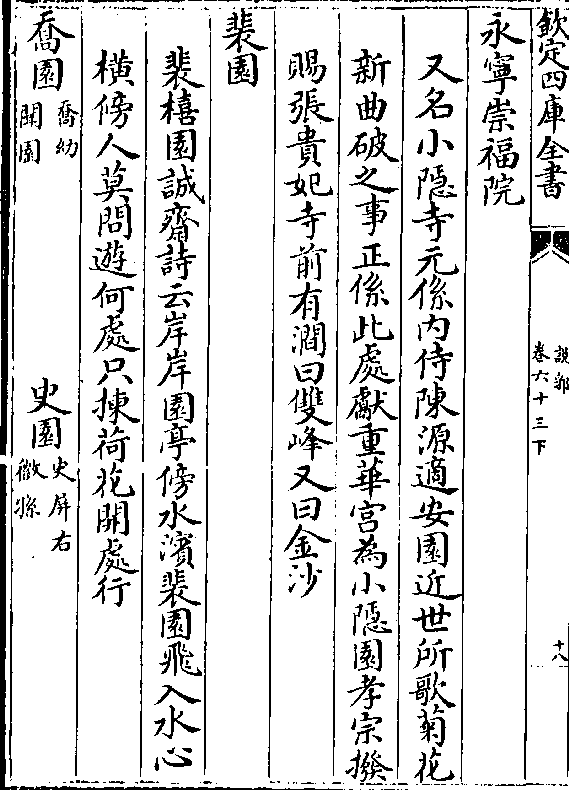 欽定四庫全書
說郛
卷六十三下
十八
永寧崇福院
又名小隱寺元係內侍陳源適安園近世所歌菊花
新曲破之事正係此處獻重華宮為小隱園孝宗撥
賜張貴妃寺前有澗曰雙峰又曰金沙
裴園
裴禧園誠齋詩云岸岸園亭傍水濱裴園飛入水心
橫傍人莫問遊何處只揀荷花開處行
喬園
喬幼
聞園
史園
史屏右
微孫